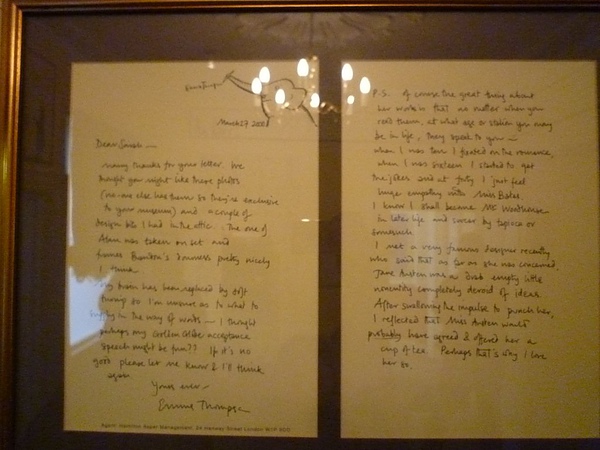 March 27 2000
Dear Sarah —
many thanks for your letter. I've
thought you might like these photos
(no-one else has them so they're exclusive
to your museum) and a couple of
design bits I had in the attic. The one of
Alan was taken on set and
frames Brandon's downess pretty nicely
I think.
My brain has been replaced by soft
so I'm unsure as to what to
in the way of words — I thought
perhaps my Golden Globe acceptance
speech might be fun?? If it's no
good please let me know & I'll think
again.
Yours ever —
Emma Thompson
London
P.S. Of course the great thing about
her work is that no matter when you
read them, at what age or station you may
be in life, they speak to you —
when I was ten I fixated on the romance,
when I was sixteen I started to get
the jokes and at forty I just feel
huge empathy with Miss Bates.
I know I shall become Mr Woodhouse
in later life and swear by tapioca or
somesuch.
I met a very famous designer recently
who said that as far as she was concerned
Jane Austen was a drab empty little
nonentity completely devoid of ideas.
After swallowing the impulse to punch her,
I reflected that Miss Austen would
probably have agreed & offered her a
cup of tea. Perhaps that's why I love
her so.